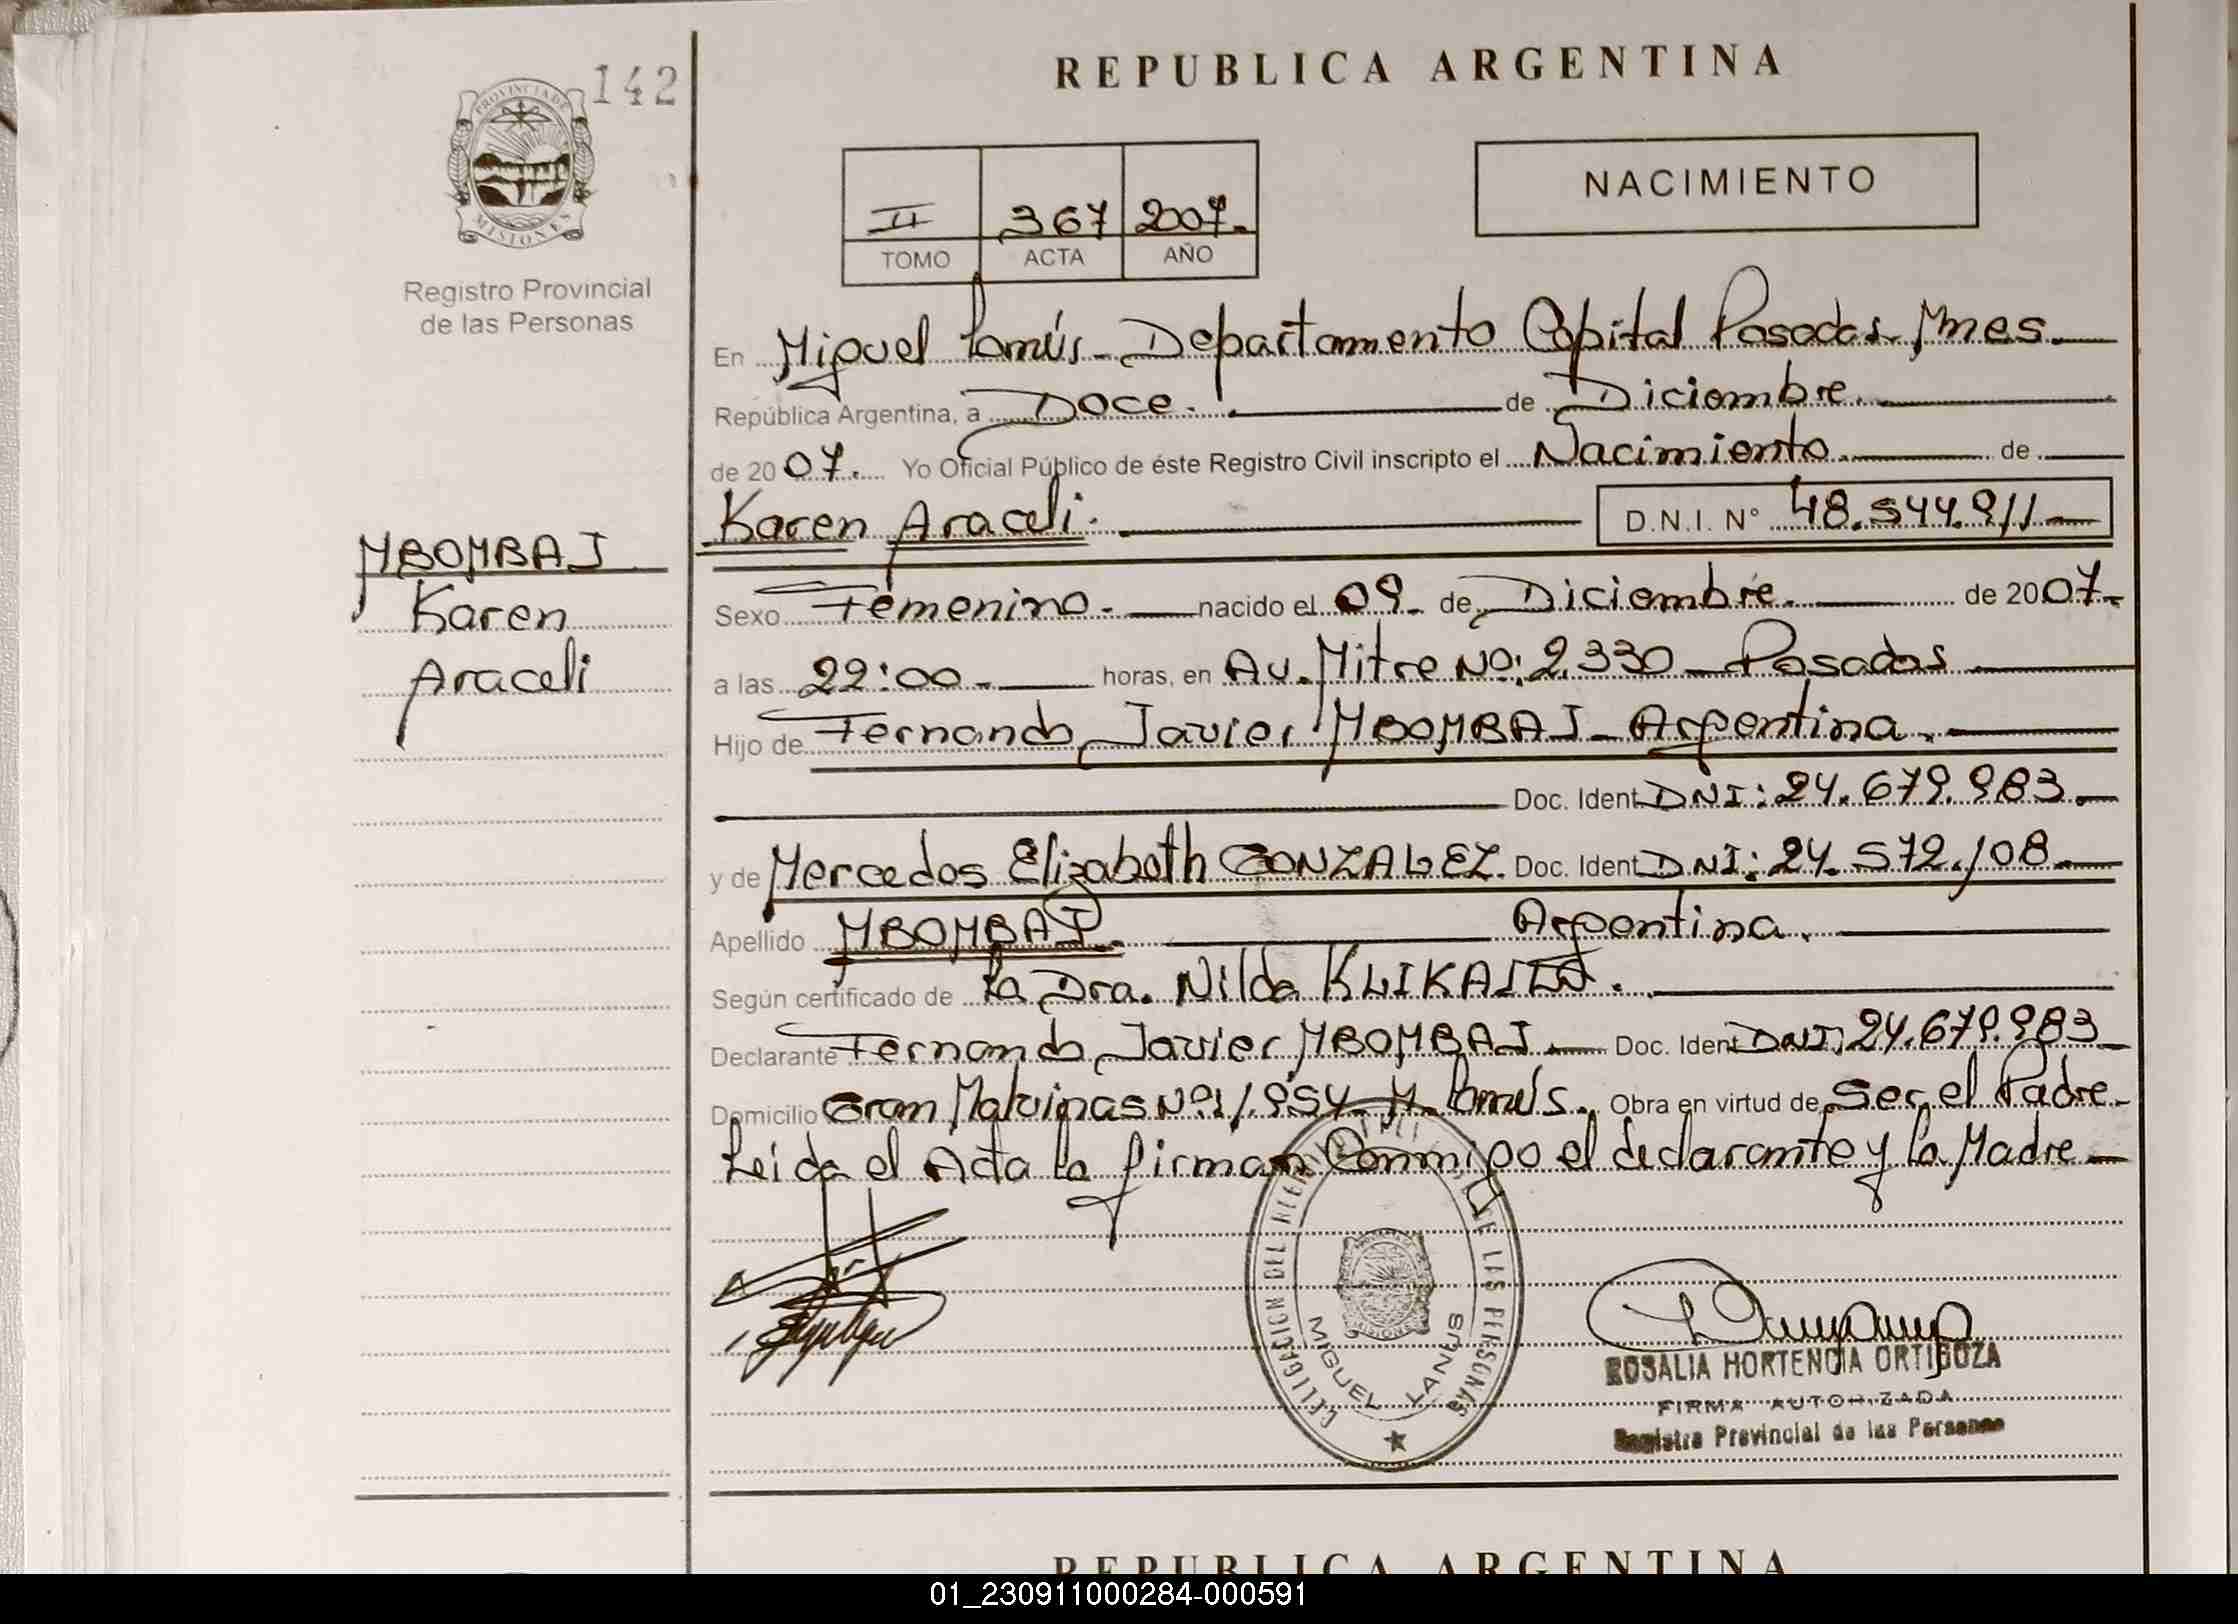 142
PROVINCIA DE
MISIONES
Registro Provincial
de las Personas
MBOMBAJ
Karen
Araceli
REPUBLICA ARGENTINA
II 367 2007.
TOMO ACTA AÑO
NACIMIENTO
En Miguel Lanús - Departamento Capital Posadas - Mnes.
República Argentina, a Doce. de Diciembre.
de 2007. Yo Oficial Público de éste Registro Civil inscripto el Nacimiento. de
Karen Araceli. D.N.I. Nº 48.544.911
Sexo Femenino. nacido el 09. de Diciembre. de 2007.
a las 22:00. horas, en Av. Mitre Nº: 2.330 - Posadas
Hijo de Fernando Javier MBOMBAJ - Argentina.
Doc. Ident DNI: 24.679.983.
y de Mercedes Elizabeth GONZALEZ. Doc. Ident DNI: 24.572.108
Apellido MBOMBAJ. Argentina.
Según certificado de La Dra. Nilda
Declarante Fernando Javier MBOMBAJ Doc. Ident DNI: 24.679.983
Domicilio Gran Malvinas Nº: 1.954 - M. Lanús. Obra en virtud de Ser el Padre
Leida el Acta la firman Conmigo el declarante y la Madre
DEL DE LAS PERSONAS
MIGUEL LANUS
ROSALIA HORTENCIA ORTIGOZA
FIRMA AUTORIZADA
Registro Provincial de las Personas
REPUBLICA ARGENTINA
01_230911000284-000591